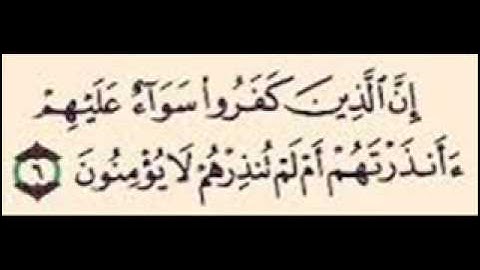 إِنَّ ٱلَّذِينَ كَفَرُوا۟ سَوَآءٌ عَلَيْهِمْ
ءَأَنذَرْتَهُمْ أَمْ لَمْ تُنذِرْهُمْ لَا يُؤْمِنُونَ ٦